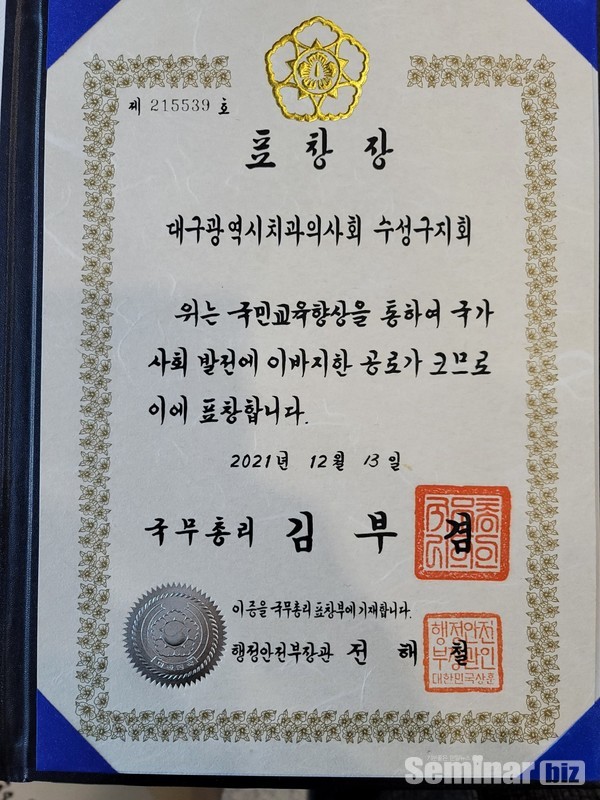 제 215539 호
표 창 장
대구광역시치과의사회 수성구지회
위는 국민교육향상을 통하여 국가
사회 발전에 이바지한 공로가 크므로
이에 표창합니다.
2021년 12월 13일
국무총리 김 부 겸
이 증을 국무총리 표창부에 기재합니다.
행정안전부장관 전 해 철
행정안전
부장관인
대한민국상훈
Seminar biz